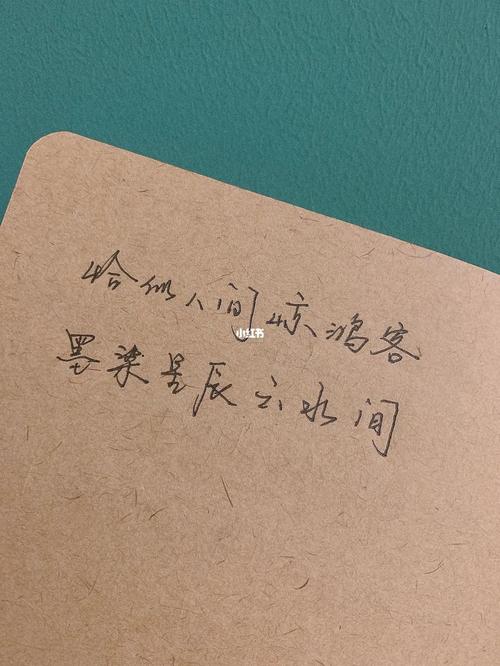 恰似人间惊鸿客
小红书
墨染星辰云水间